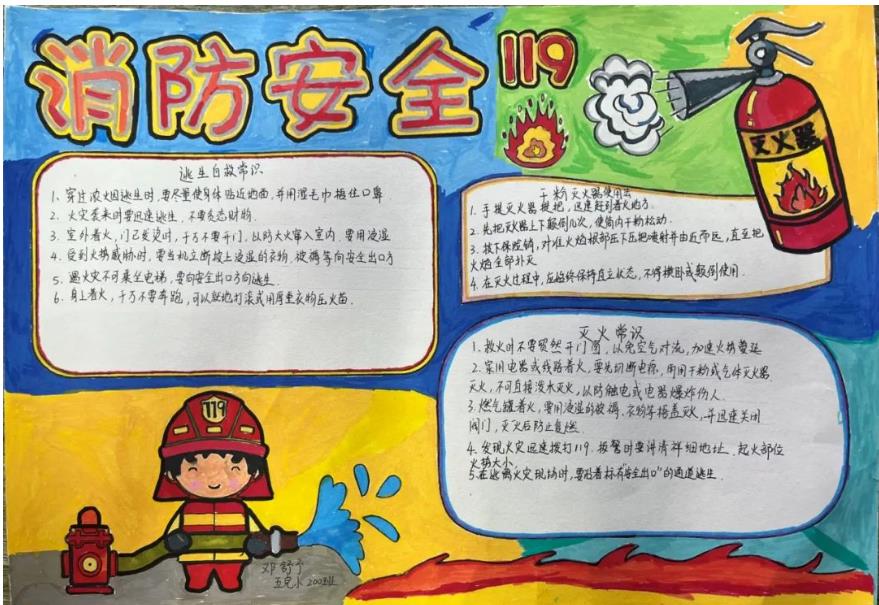 消防安全
119
灭火器
逃生自救常识
1、穿过浓火因逃生时，要尽量使身体贴近地面，并用湿毛巾捂住口鼻
2、火灾袭来时要迅速逃生，不要贪恋财物.
3、室外着火，门已发烫时，千万不要开门，以防大火窜入室内. 要用浸湿
4、受到火势威胁时，要当机立断披上浸湿的衣物、被褥等向安全出口方
5、遇火灾不可乘坐电梯，要向安全出口方向逃生.
6、身上着火，千万不要奔跑，可以就地打滚或用厚重衣物压火苗.
干粉灭火器使用法
1.手提灭火器提把，迅速赶到着火地方.
2.先把灭火器上下颠倒几次，使筒内干粉松动.
3.拔下保险销，对准火焰根部压下压把喷射并由近而远，直至把
火焰全部扑灭
4.在灭火过程中，应始终保持直立状态，不得横卧或颠倒使用.
灭火常识
1.救火时不要贸然开门窗，以免空气对流，加速火势蔓延
2.家用电器或线路着火，要先切断电源，再用干粉或气体灭火器
灭火，不可直接泼水灭火，以防触电或电器爆炸伤人.
3.燃气罐着火，要用浸湿的被褥、衣物等捂盖灭火，并迅速关闭
阀门，灭火后防止复燃.
4.发现火灾迅速拨打119. 报警时要讲清详细地址、起火部位
火势大小.
5.在逃离火灾现场时，要沿着标有“安全出口”的通道逃生.
119
邓舒予